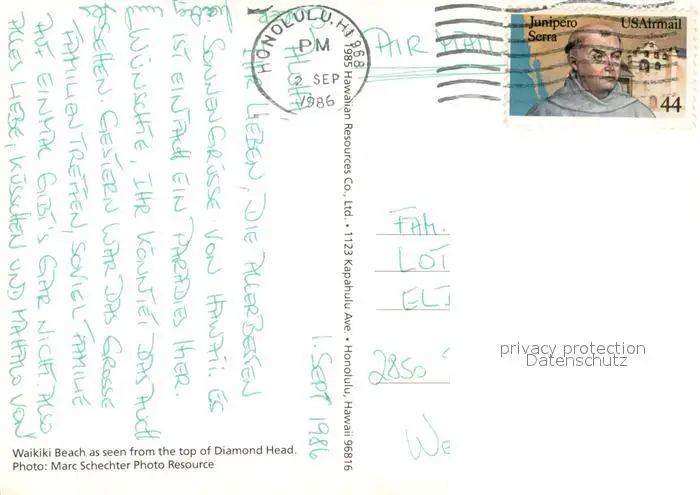 1. SEPT 1986
ALOHA
IHR LIEBEN, DIE ALLERBESTEN
SONNENGRÜSSE VON HAWAII. ES
IST EINFACH EIN PARADIES HIER.
WÜNSCHTE, IHR KÖNNTET DAS AUCH
SEHEN. GESTERN WAR DAS GROSSE
FAMILIENTREFFEN, SOVIEL FAMILIE
AUF EINMAL GIBT'S GAR NICHT. ALSO
ALLES LIEBE, KÜSSCHEN UND MAHALO VON
Waikiki Beach as seen from the top of Diamond Head.
Photo: Marc Schechter Photo Resource
1985 Hawaiian Resources Co., Ltd. • 1123 Kapahulu Ave. • Honolulu, Hawaii 96816
HONOLULU, HI 968
PM
2 SEP
1986
AIR MAIL
Junipero
Serra
USAirmail
44
FAM.
LOT
ELI
2850
WE
privacy protection
Datenschutz